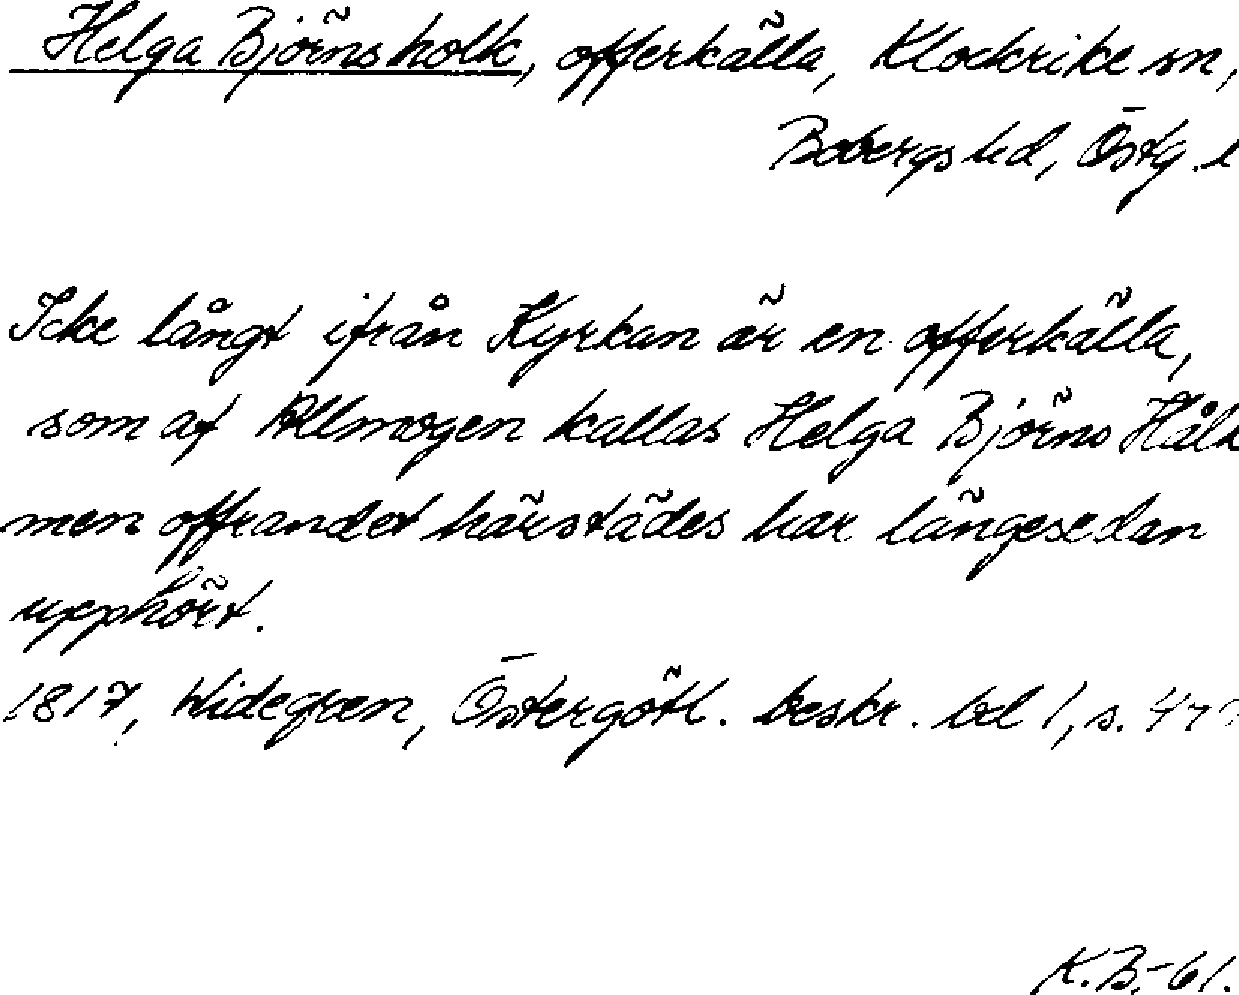 Helga Björnsholk, offerkälla, Klockrike sn,
Bobergs hd, Östg. l
Icke långt ifrån Kyrkan är en offerkälla,
som af Allmogen kallas Helga Björns Hålk
men offrandet härstädes har längesedan
upphört.
1817, Widegren, Östergötl. beskr. bd 1, s.
K.B.-61.